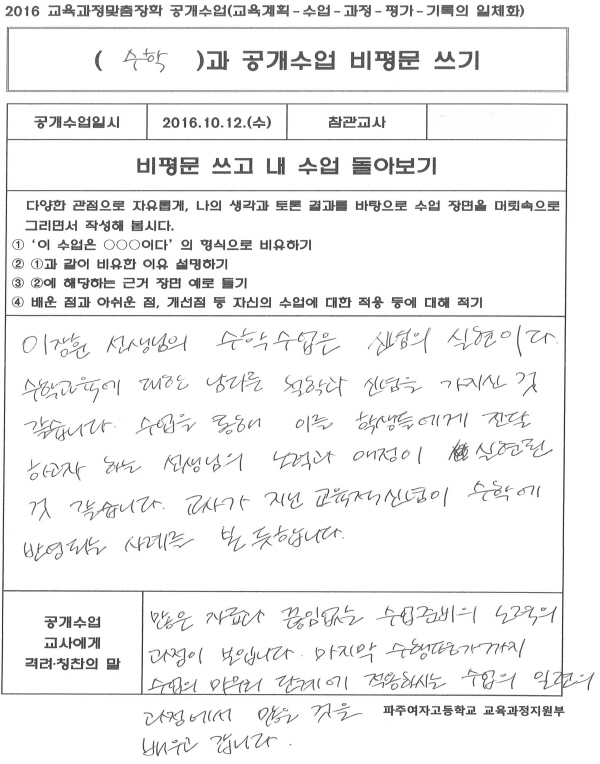 2016 교육과정맞춤장학 공개수업(교육계획-수업-과정-평가-기록의 일체화)
( 수학 )과 공개수업 비평문 쓰기
공개수업일시 2016.10.12.(수) 참관교사
비평문 쓰고 내 수업 돌아보기
다양한 관점으로 자유롭게, 나의 생각과 토론 결과를 바탕으로 수업 장면을 머릿속으로
그리면서 작성해 봅시다.
① ‘이 수업은 ○○○이다’ 의 형식으로 비유하기
② ①과 같이 비유한 이유 설명하기
③ ②에 해당하는 근거 장면 예로 들기
④ 배운 점과 아쉬운 점, 개선점 등 자신의 수업에 대한 적용 등에 대해 적기
이장훈 선생님의 수학수업은 신념의 실현이다.
수학교육에 대한 남다른 철학과 신념을 가지신 것
같습니다. 수업을 통해 이를 학생들에게 전달
하고자 하는 선생님의 노력과 애정이 실현된
것 같습니다. 교사가 지닌 교육적신념이 수학에
반영되는 사례를 본 듯합니다.
공개수업
교사에게
격려·칭찬의 말
많은 자료와 끊임없는 수업준비의 노력의
과정이 보입니다. 마지막 수행평가까지
수업의 마무리 단계에 적용하시는 수업의 일련의
과정에서 많은 것을
배우고 갑니다.
파주여자고등학교 교육과정지원부